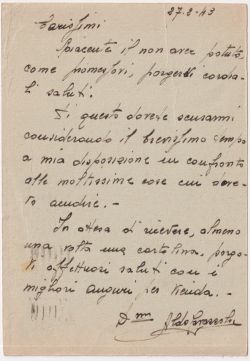 27-2-43
Carissimi
Spiacente il non aver potuto,
come promessovi, porgervi cordia-
li saluti.
Di questo dovete scusarmi
considerando il brevissimo tempo
a mia disposizione in confronto
alle moltissime cose cui dove-
vo accudire. -
In attesa di ricevere, almeno
una volta una cartolina, porgo-
vi affettuosi saluti con i
migliori auguri per
Aldo